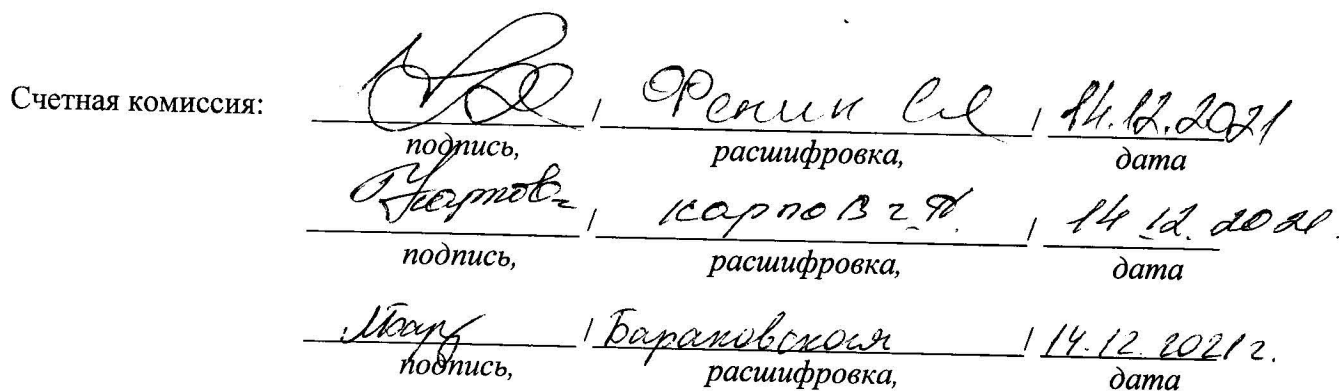 Счетная комиссия: / Фенин СА / 14.12.2021
подпись, расшифровка, дата
/ Карпов г.П. / 14.12.2021.
подпись, расшифровка, дата
/ Барановская / 14.12.2021г.
подпись, расшифровка, дата